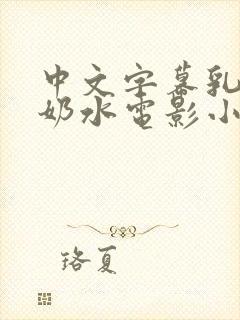 中文字幕乳
奶水电影小
珞夏